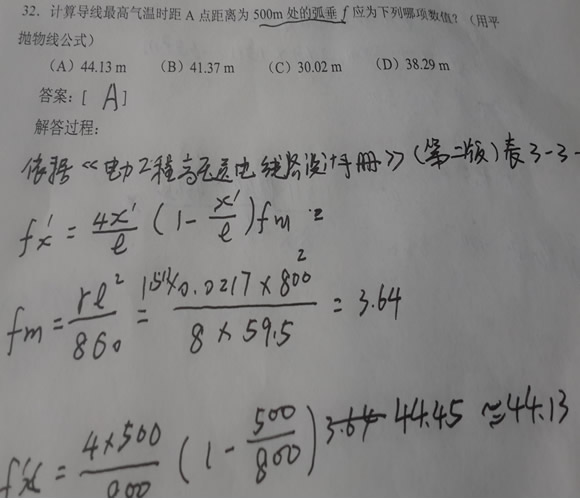 32. 计算导线最高气温时距 A 点距离为 500m 处的弧垂 f 应为下列哪项数值？（用平
抛物线公式）
（A）44.13 m （B）41.37 m （C）30.02 m （D）38.29 m
答案：[ A ]
解答过程：
依据《电力工程高压送电线路设计手册》(第二版) 表3-3-
fx' = 4x'/l (1 - x'/l) fm =
fm = rl²/8σ₀ = 0.0217 × 800² / 8 × 59.5 = 3.64
f'x = 4×500/800 (1 - 500/800) 3.64 44.45 ≈ 44.13